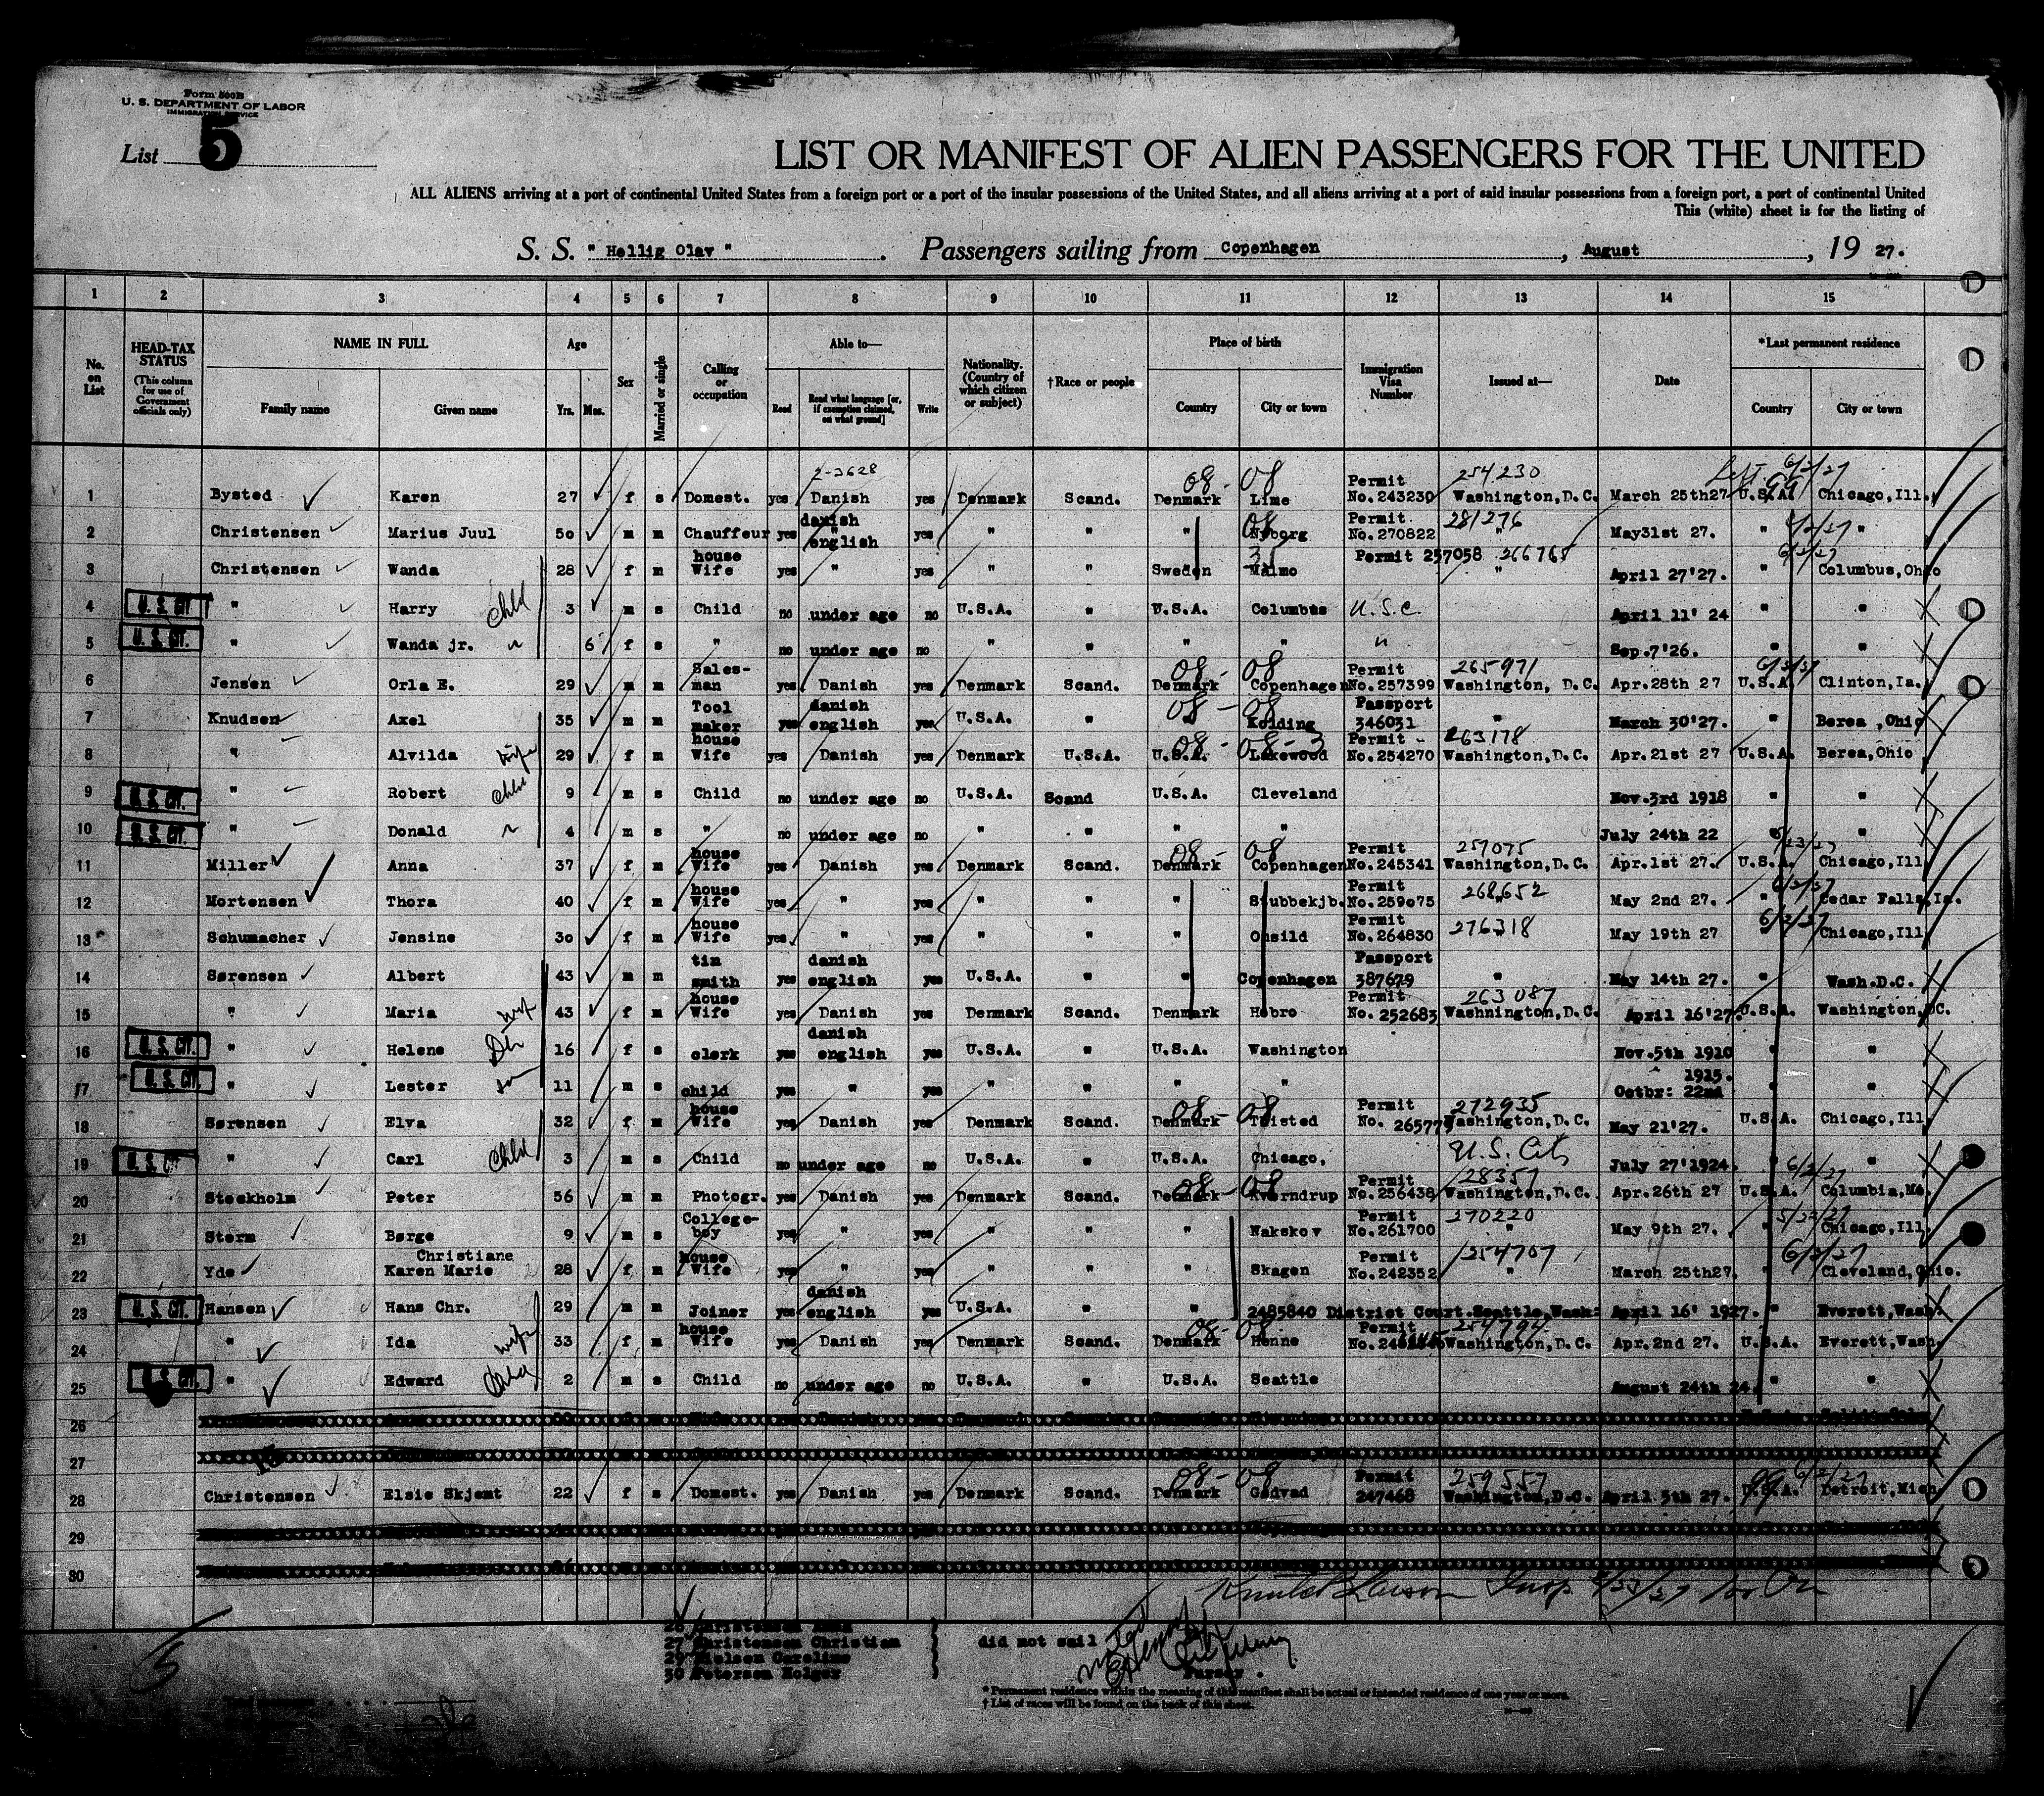 Form 500B
U. S. DEPARTMENT OF LABOR
IMMIGRATION SERVICE
List 5
LIST OR MANIFEST OF ALIEN PASSENGERS FOR THE UNITED
ALL ALIENS arriving at a port of continental United States from a foreign port or a port of the insular possessions of the United States, and all aliens arriving at a port of said insular possessions from a foreign port, a port of continental United
This (white) sheet is for the listing of
S. S. " Hellig Olav " . Passengers sailing from Copenhagen , August , 19 27.
1 2 3 4 5 6 7 8 9 10 11 12 13 14 15
No. on List HEAD-TAX STATUS (This column for use of Government officials only) NAME IN FULL Family name Given name Age Yrs. Mos. Sex Married or single Calling or occupation Able to— Read Read what language [or, if exemption claimed, on what ground] Write Nationality. (Country of which citizen or subject) † Race or people Place of birth Country City or town Immigration Visa Number Issued at— Date * Last permanent residence Country City or town
2-3628 08 - 08 Permit 254230 Left 6/2/27
1 Bysted Karen 27 f s Domest. yes Danish yes Denmark Scand. Denmark Lime No. 243230 Washington, D.C. March 25th27 U.S.A. Chicago, Ill.
danish 08 Permit 281276
2 Christensen Marius Juul 50 m m Chauffeur yes " english yes " " " Nyborg No. 270822 " May31st 27. " "
house
3 Christensen Wanda 28 f m Wife yes " yes " " Sweden Malmo Permit 257058 266765 " April 27'27. " Columbus, Ohio
4 U. S. CIT. " Harry Chld 3 m s Child no under age no U.S.A. " U.S.A. Columbus U.S.C. April 11' 24 " "
5 U. S. CIT. " Wanda jr. " 6 f s " no under age no " " " " " Sep.7'26. " "
Sales- 08 - 08 Permit 265971
6 Jensen Orla E. 29 m m man yes Danish yes Denmark Scand. Denmark Copenhagen No. 257399 Washington, D.C. Apr.28th 27 U.S.A. Clinton, Ia.
Tool danish 08 - 08 Passport
7 Knudsen Axel 35 m m maker yes english yes U.S.A. " " Kolding 346031 " March 30'27. " Berea, Ohio
house 08 - 08 - 3 Permit 263178
8 " Alvilda wife 29 f m Wife yes Danish yes Denmark U.S.A. U.S.A. Lakewood No. 254270 Washington, D.C. Apr.21st 27 U.S.A. Berea, Ohio
9 U. S. CIT. " Robert Chld 9 m s Child no under age no U.S.A. Scand U.S.A. Cleveland Nov.3rd 1918 " "
10 U. S. CIT. " Donald " 4 m s " no under age no " " " " July 24th 22 " "
house 08 - 08 Permit 257075
11 Miller Anna 37 f m Wife yes Danish yes Denmark Scand. Denmark Copenhagen No. 245341 Washington, D.C. Apr.1st 27. U.S.A. Chicago, Ill
house Permit 268652
12 Mortensen Thora 40 f m Wife yes " yes " " " Stubbekjb. No. 259075 " May 2nd 27. " Cedar Falls, Ia.
house Permit 276318 6/2/27
13 Schumacher Jensine 30 f m Wife yes " yes " " " Onsild No. 264830 " May 19th 27 " Chicago, Ill
tin danish Passport
14 Sørensen Albert 43 m m smith yes english yes U.S.A. " " Copenhagen 387679 " May 14th 27. " Wash.D.C.
house Permit 263087
15 " Maria wife 43 f m Wife yes Danish yes Denmark Scand. Denmark Hobro No. 252683 Washnington, D.C. April 16'27. U.S.A. Washington, DC.
danish
16 U. S. CIT. " Helene Da 16 f s clerk yes english yes U.S.A. " U.S.A. Washington Nov.5th 1910 " "
1915.
17 U. S. CIT. " Lester son 11 m s child yes " yes " " " " Octbr: 22nd " "
house 08 - 08 Permit 272935
18 Sørensen Elva 32 f m Wife yes Danish yes Denmark Scand. Denmark Thisted No. 26577 Washington, D.C. May 21'27. U.S.A. Chicago, Ill
19 U. S. CIT. " Carl Chld 3 m s Child no under age no U.S.A. " U.S.A. Chicago, U.S. Cit July 27'1924. " "
08 - 08 Permit 28357 6/2/27
20 Stockholm Peter 56 m m Photogr. yes Danish yes Denmark Scand. Denmark Kverndrup No. 256438 Washington, D.C. Apr.26th 27 U.S.A. Columbia, Mo.
College- Permit 270220
21 Storm Børge 9 m s boy yes " yes " " " Nakskov No. 261700 " May 9th 27. " Chicago, Ill
Christiane house Permit 254707 6/2/27
22 Yde Karen Marie 28 f m Wife yes " yes " " " Skagen No. 242352 " March 25th27. " Cleveland, Ohio.
danish
23 U. S. CIT. Hansen Hans Chr. 29 m m Joiner yes english yes U.S.A. " " 2485840 District Court.Seattle, Wash: April 16' 1927. " Everett, Wash.
house 08 - 08 Permit 254794
24 " Ida wife 33 f m Wife yes Danish yes Denmark Scand. Denmark Henne Washington, D.C. Apr.2nd 27. U.S.A. Everett, Wash.
25 U. S. CIT. " Edward Child 2 m s Child no under age no U.S.A. " U.S.A. Seattle August 24th 24. " "
26
27
08 - 08 Permit 259557 6/2/27
28 Christensen Elsie Skjømt 22 f s Domest. yes Danish yes Denmark Scand. Denmark Gødvad 247468 Washington, D.C. April 5th 27. U.S.A. Detroit, Mich
29
30
26 Christensen Anna
27 Christensen Christian
29 Nielsen Caroline
30 Petersen Holger
did not sail
Purser.
* Permanent residence within the meaning of this manifest shall be actual or intended residence of one year or more.
† List of races will be found on the back of this sheet.